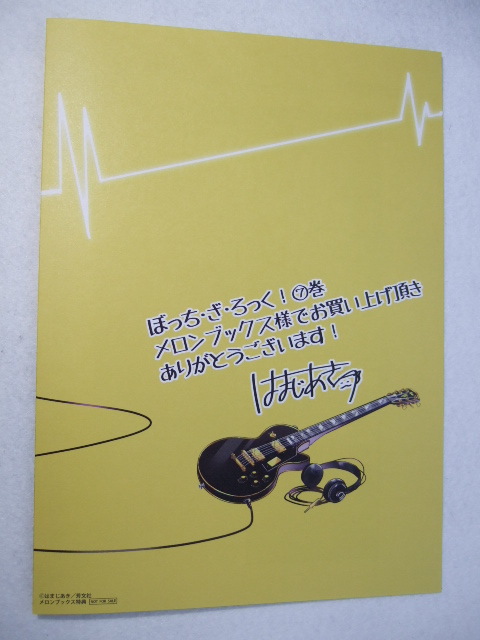 ぼっち・ざ・ろっく！⑦巻
メロンブックス様でお買い上げ頂き
ありがとうございます！
はまじあき
©はまじあき／芳文社
メロンブックス特典 NOT FOR SALE